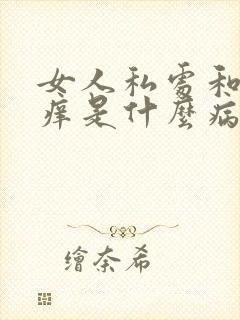 女人私處和
痒是什麼病
繪奈希